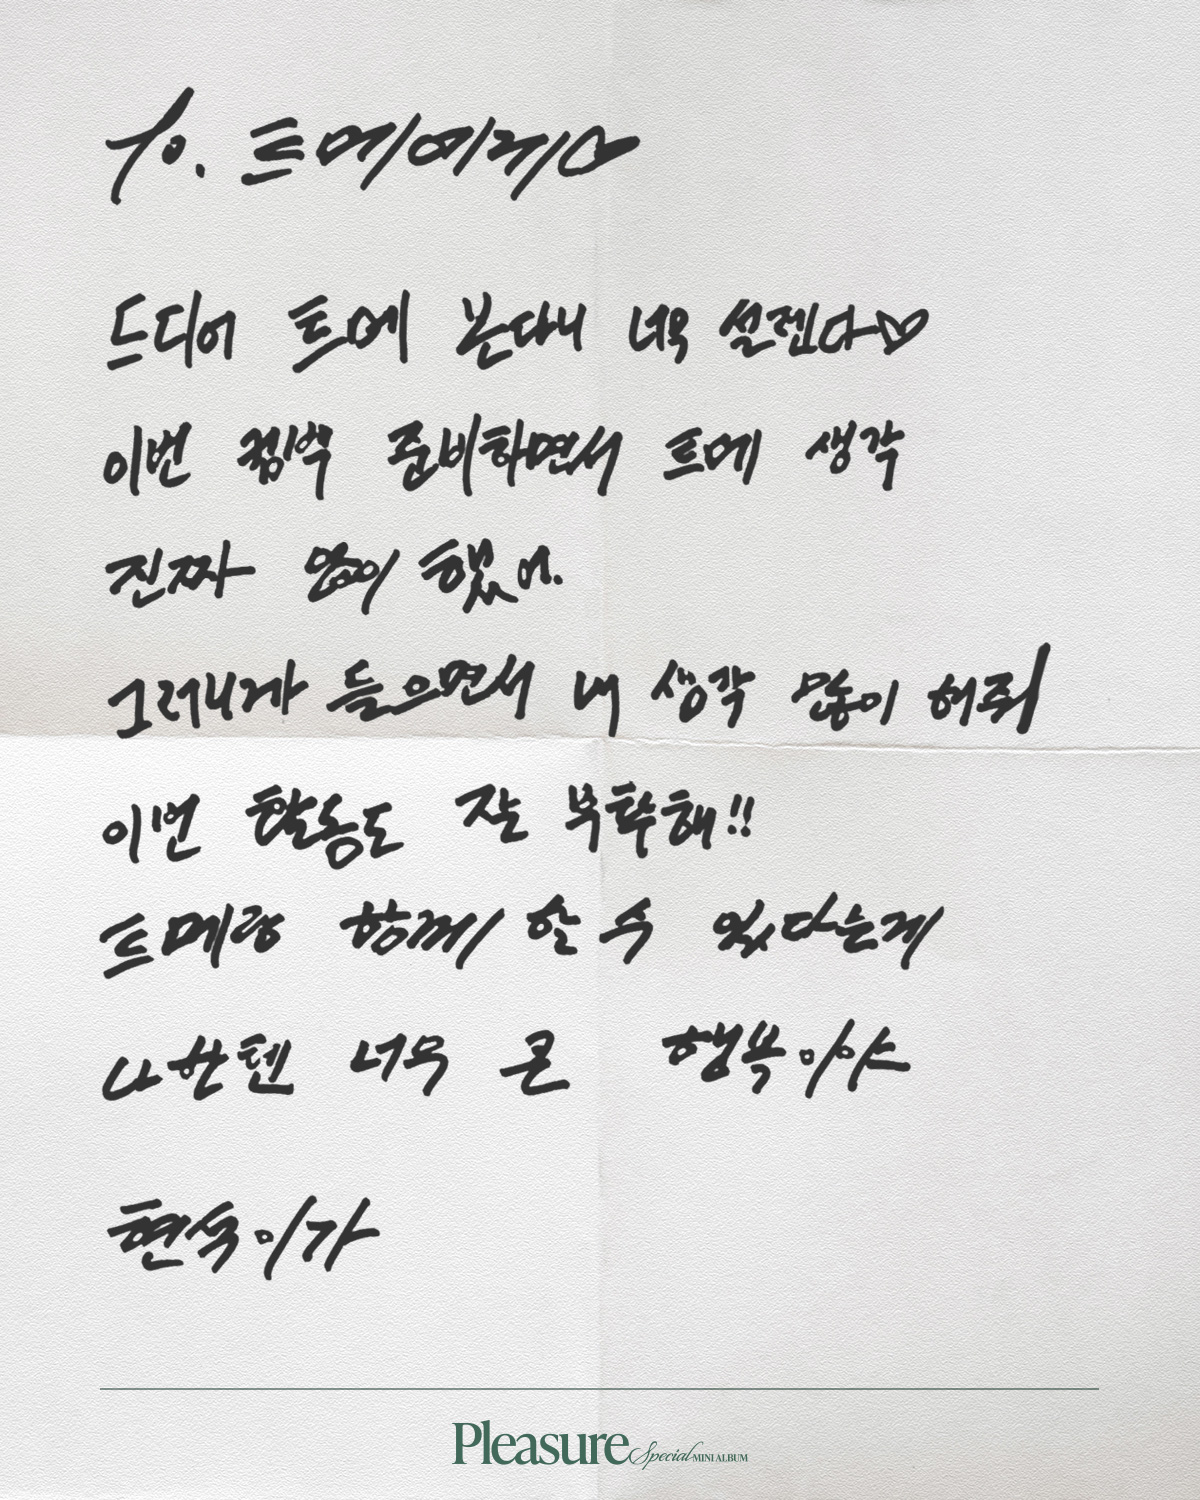 To. 트메에게♡
드디어 트메 본다니 너무 설렌다♡
이번 컴백 준비하면서 트메 생각
진짜 많이 했어.
그러니까 들으면서 내 생각 많이 해줘
이번 활동도 잘 부탁해!!
트메랑 함께 할 수 있다는게
나한텐 너무 큰 행복이야
현숙이가
Pleasure Special MINI ALBUM